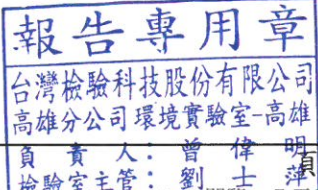 報告專用章
台灣檢驗科技股份有限公司
高雄分公司環境實驗室-高雄
負責人：曾偉明
頁
檢驗室主管：劉士萍